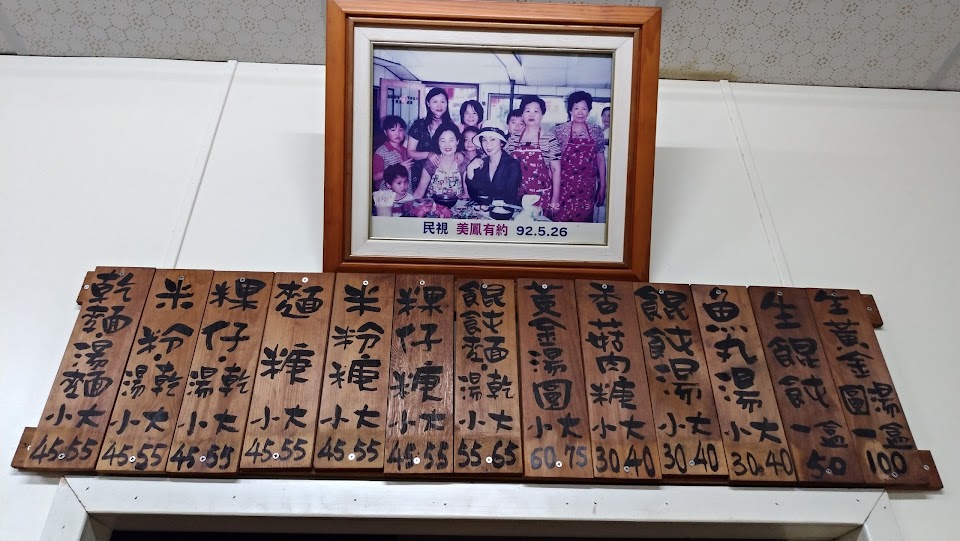 民視 美鳳有約 92.5.26
乾麵湯麵 小大 45.55
米粉.乾湯 小大 45.55
粿仔.乾湯 小大 45.55
麵焿 小大 45.55
米粉焿 小大 45.55
粿仔焿 小大 45.55
餛飩麵.乾湯 小大 55.65
黃金湯圓 小大 60.75
香菇肉焿 小大 30.40
餛飩湯 小大 30.40
魚丸湯 小大 30.40
生餛飩一盒 50
生黃金湯圓一盒 100